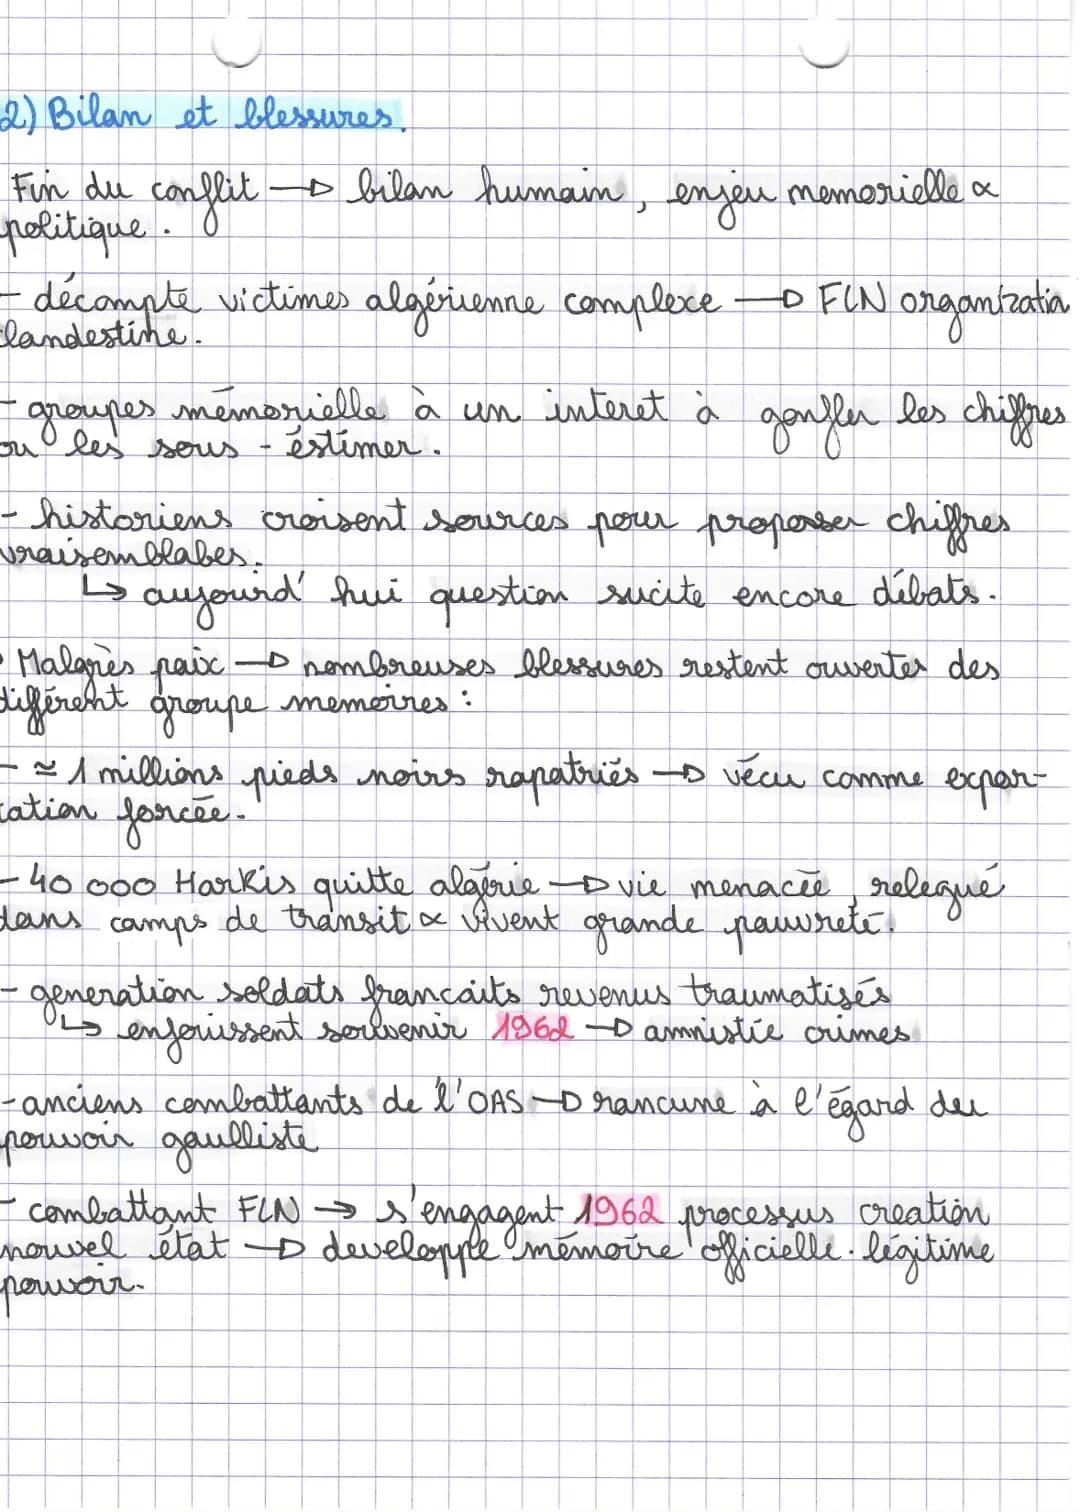 2) Bilan et blessures.
Fin du conflit → bilan humain, enjeu memorielle &
politique.
- décompte victimes algérienne complexe → FLN organization
clandestine.
- groupes mémorielle à un interet à gonfler les chiffres
ou les sous-éstimer.
- historiens croisent sources pour proposer chiffres
vraisemblabes.
↳ aujourd'hui question sucite encore débats.
Malgrès paix → nombreuses blessures restent ouvertes des
différent groupe memoires :
- ≃ 1 millions pieds noirs rapatriés → vécu comme expor-
tation forcée.
- 40 000 Harkis quitte algérie → vie menacée, relegué
dans camps de transit & vivent grande pauvreté.
- generation soldats francaits revenus traumatisés
↳ enfouissent souvenir 1962 → amnistie crimes
- anciens combattants de l'OAS → rancune à l'égard du
pouvoir gaulliste
- combattant FLN → s'engagent 1962 processus creation
nouvel état → developpe mémoire officielle. légitime
pouvoir.